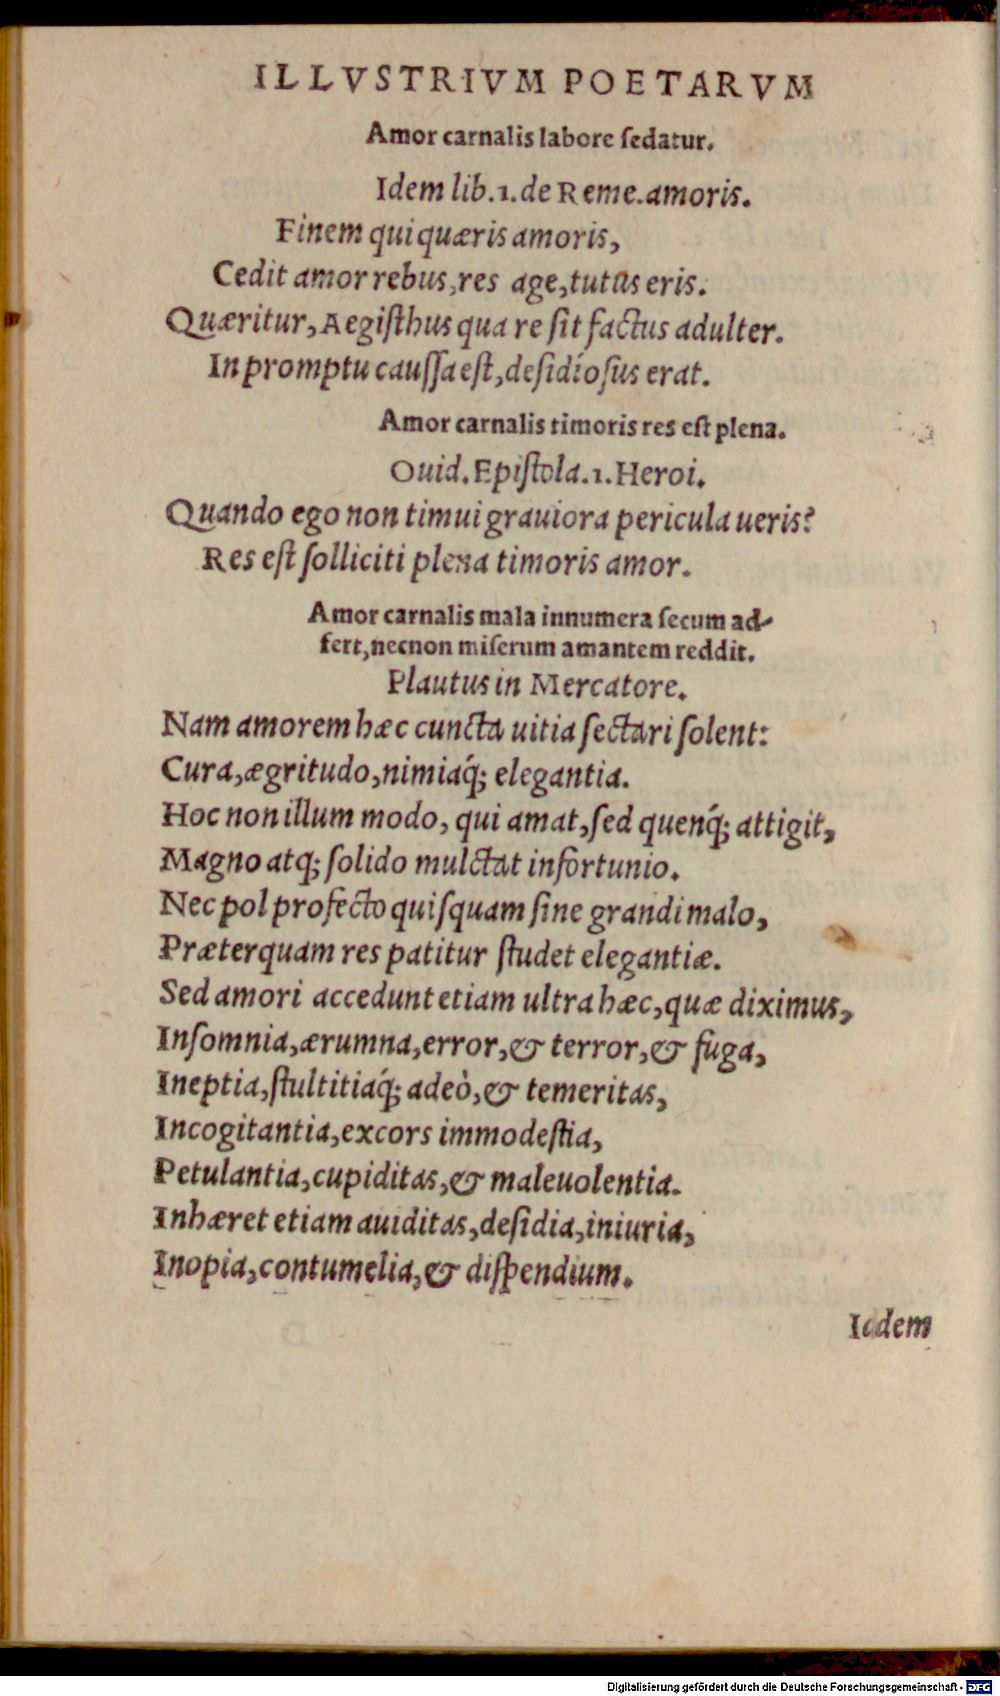 ILLVSTRIVM POETARVM
Amor carnalis labore ſedatur.
Idem lib.1.de Reme.amoris.
Finem qui quæris amoris,
Cedit amor rebus,res age,tutus eris.
Quæritur, Aegiſthus qua re ſit factus adulter.
In promptu cauſſa eſt,deſidioſus erat.
Amor carnalis timoris res eſt plena.
Ouid.Epiſtola.1.Heroi.
Quando ego non timui grauiora pericula ueris?
Res eſt ſolliciti plena timoris amor.
Amor carnalis mala innumera ſecum ad-
fert,necnon miſerum amantem reddit.
Plautus in Mercatore.
Nam amorem hæc cuncta uitia ſectari ſolent:
Cura,ægritudo,nimiaq́; elegantia.
Hoc non illum modo, qui amat,ſed quenq́; attigit,
Magno atq; ſolido mulctat infortunio.
Nec pol profecto quiſquam ſine grandi malo,
Præterquam res patitur ſtudet elegantiæ.
Sed amori accedunt etiam ultra hæc,quæ diximus,
Inſomnia,ærumna,error,& terror,& fuga,
Ineptia,ſtultitiaq́; adeò,& temeritas,
Incogitantia,excors immodeſtia,
Petulantia,cupiditas,& maleuolentia.
Inhæret etiam auiditas,deſidia,iniuria,
Inopia,contumelia,& diſpendium.
Iddem
Digitalisierung gefördert durch die Deutsche Forschungsgemeinschaft - DFG